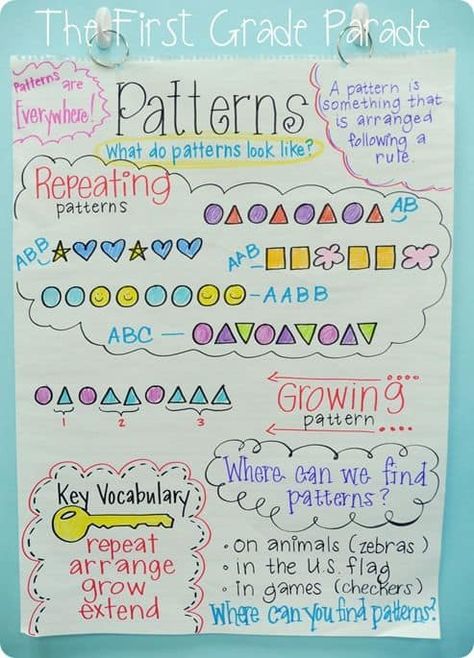 The First Grade Parade
Patterns are
Everywhere!
Patterns
What do patterns look like?
A pattern is
something that
is arranged
following a
rule.
Repeating
patterns
AB
ABB
AAB
AABB
ABC
1 2 3
Growing
pattern
Key Vocabulary
repeat
arrange
grow
extend
Where can we find
patterns?
• on animals (zebras)
• in the U.S. flag
• in games (checkers)
Where can you find patterns?